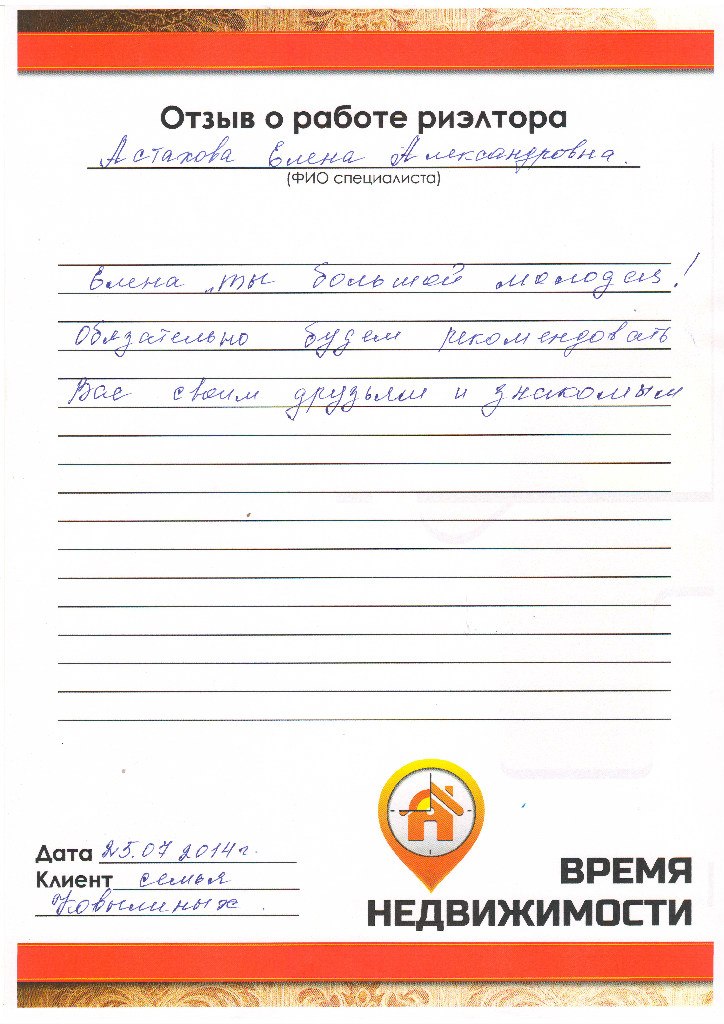 Отзыв о работе риэлтора
Астахова Елена Александровна.
(ФИО специалиста)
Елена, ты большой молодец!
Обязательно будем рекомендовать
Вас своим друзьям и знакомым
Дата 25.07 2014г.
Клиент семья
Ковылиных.
ВРЕМЯ
НЕДВИЖИМОСТИ